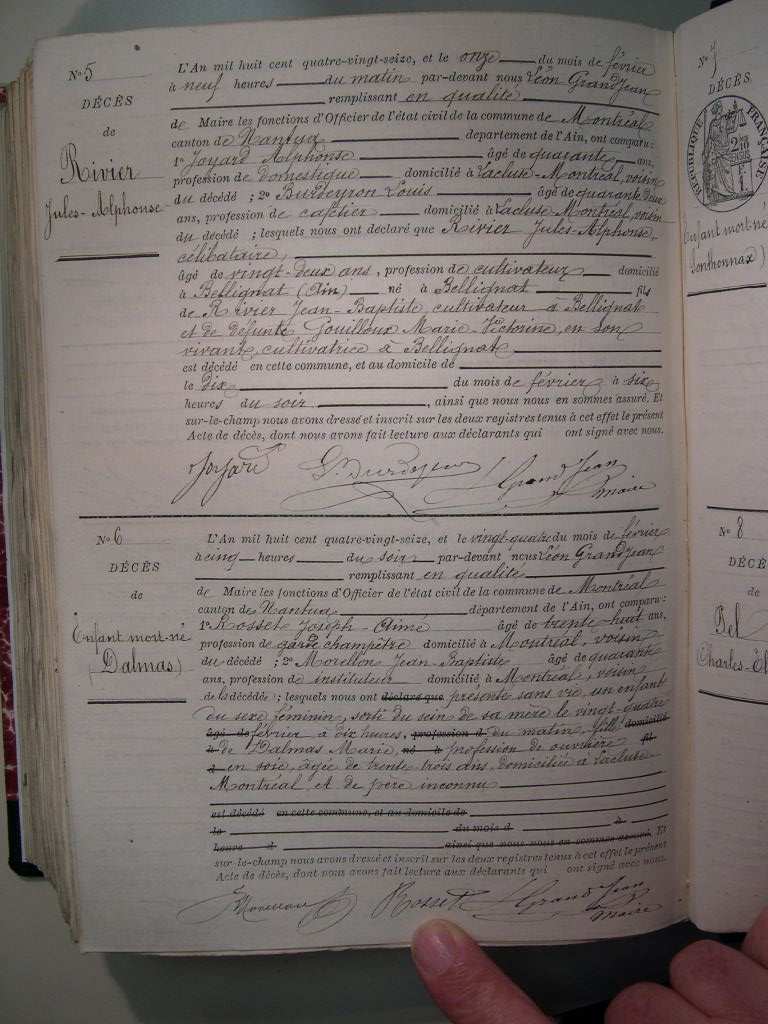 No 5
DÉCÈS
de
Rivier
Jules-Alphonse
L'An mil huit cent quatre-vingt-seize, et le onze du mois de février
à neuf heures du matin par-devant nous Léon Grandjean
remplissant en qualité
de Maire les fonctions d'Officier de l'état civil de la commune de Montréal
canton de Nantua département de l'Ain, ont comparu:
1o Joyard Alphonse âgé de quarante ans,
profession de domestique domicilié à Lacluse-Montréal, voisin
du décédé ; 2o Burdeyron Louis âgé de quarante deux
ans, profession de cafetier domicilié à Lacluse-Montréal, voisin
du décédé ; lesquels nous ont déclaré que Rivier Jules-Alphonse,
célibataire,
âgé de vingt-deux ans, profession de cultivateur domicilié
à Bellignat (Ain) né à Bellignat fils
de Rivier Jean-Baptiste, cultivateur à Bellignat
et de défunte Gouilloux Marie-Victorine, en son
vivant, cultivatrice à Bellignat
est décédé en cette commune, et au domicile de
le dix du mois de février à six
heures du soir, ainsi que nous nous en sommes assuré. Et
sur-le-champ nous avons dressé et inscrit sur les deux registres tenus à cet effet le présent
Acte de décès, dont nous avons fait lecture aux déclarants qui ont signé avec nous.
Joyard Grandjean
maire
No 6
DÉCÈS
de
Enfant mort-né
(Dalmas)
L'An mil huit cent quatre-vingt-seize, et le vingt-quatre du mois de février
à cinq heures du soir par-devant nous Léon Grandjean
remplissant en qualité
de Maire les fonctions d'Officier de l'état civil de la commune de Montréal
canton de Nantua département de l'Ain, ont comparu:
1o Rosset Joseph-Aimé âgé de trente-huit ans,
profession de garde champêtre domicilié à Montréal, voisin
du décédé ; 2o Morellon Jean-Baptiste âgé de quarante
ans, profession de instituteur domicilié à Montréal, voisin
de la décédée ; lesquels nous ont déclaré que présenté sans vie, un enfant
du sexe féminin, sorti du sein de sa mère le vingt-quatre
âgé de février à dix heures, profession d du matin, fille domicilié
à de Dalmas Marie, né à profession de ouvrière fil
d en soie, âgée de trente trois ans, domiciliée à Lacluse
Montréal et de père inconnu
est décédé en cette commune, et au domicile de
le du mois d à
heure d ainsi que nous nous en sommes assuré. Et
sur-le-champ nous avons dressé et inscrit sur les deux registres tenus à cet effet le présent
Acte de décès, dont nous avons fait lecture aux déclarants qui ont signé avec nous.
Rosset Grandjean
maire
No 7
DÉCÈS
RÉPUBLIQUE FRANÇAISE
Enfant mort-né
Sonthonnax)
No 8
DÉCÈ
de
Bel
Charles-É